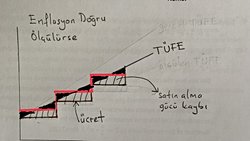 Enflasyon Doğru
Ölçülürse
TÜFE
satın alma
gücü kaybı
ücret